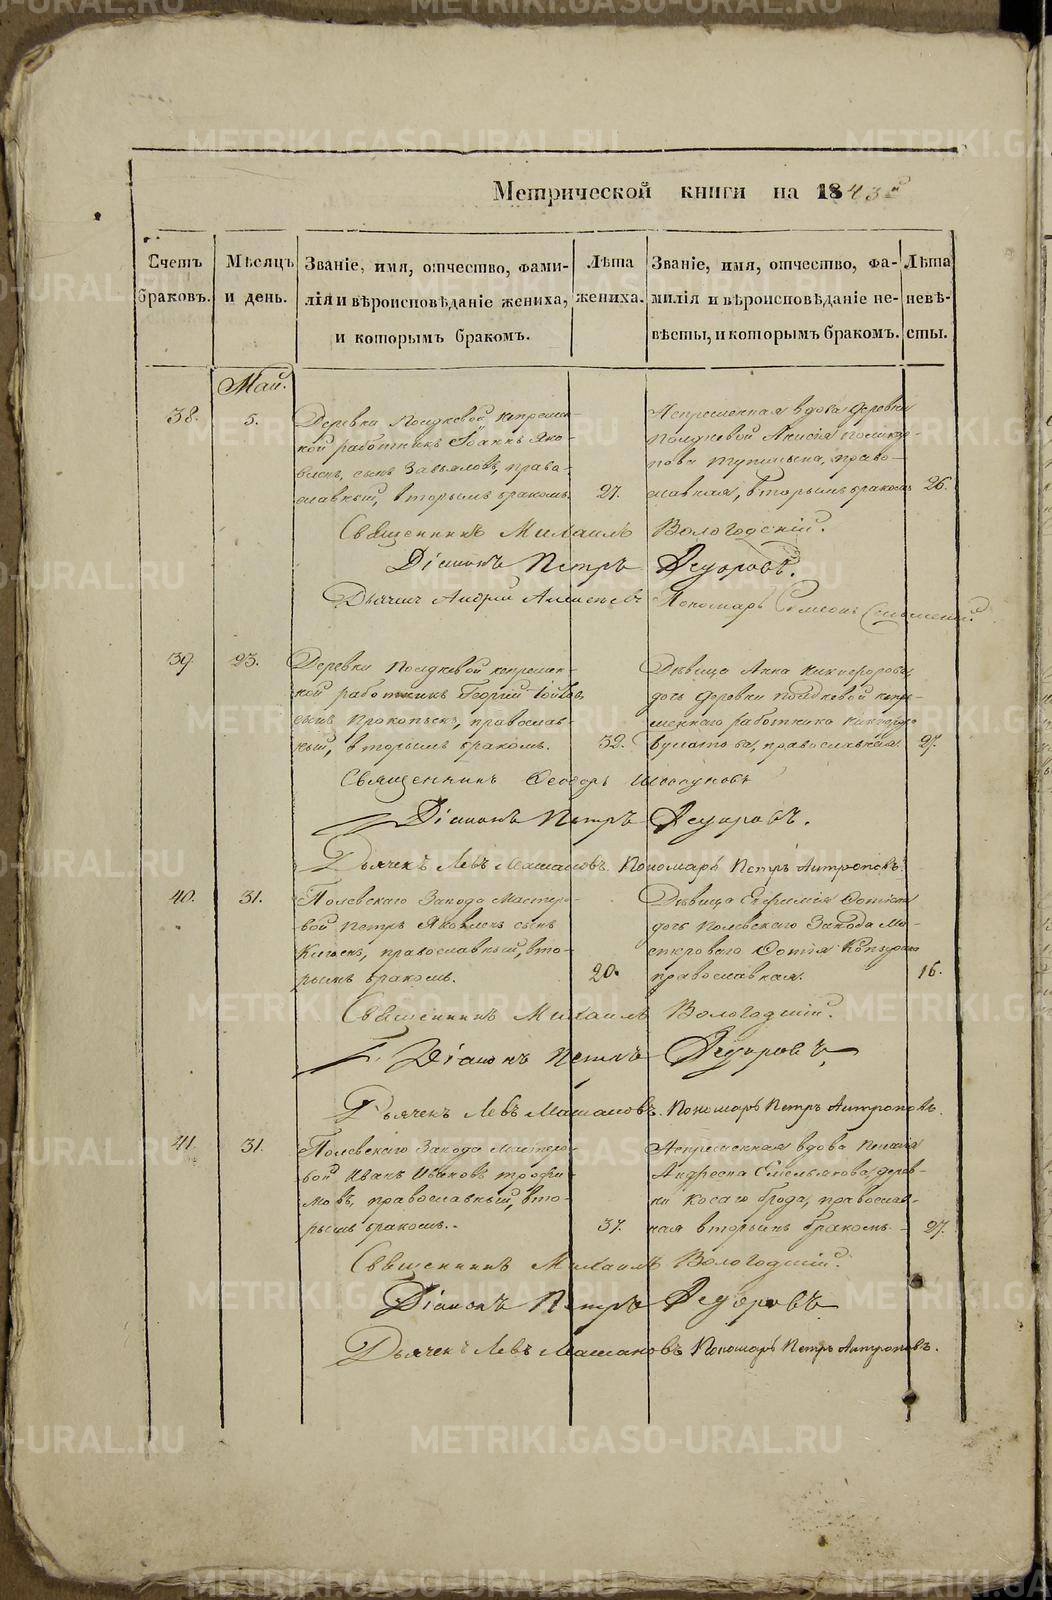 METRIKI.GASO-URAL.RU
Метрической книги на 1843й
Счетъ браковъ.
Мѣсяцъ и день.
Званіе, имя, отчество, фами-
лія и вѣроисповѣданіе жениха,
и которымъ бракомъ.
Лѣта
жениха.
Званіе, имя, отчество, фа-
милія и вѣроисповѣданіе не-
вѣсты, и которымъ бракомъ.
Лѣта
невѣ-
сты.
Май.
38.
5.
Деревни Полдневой непремѣн-
ной работникъ Іоаннъ Яко-
влевъ, сынъ Завьяловъ, право-
славный, вторымъ бракомъ.
27.
Непременная вдова деревни
Полдневой Анисія Поликар-
пова православная, вторымъ бракомъ
26.
Священникъ Михаилъ Вологодскій.
Діаконъ Петръ Ѳедоровъ.
Дьячекъ Андрей Алексѣевъ Пономарь Симеонъ
39.
23.
Деревни Полдневой непремен-
ной работникъ Георгий
сынъ Прокопьевъ, православ-
ный, вторымъ бракомъ.
32.
Дѣвица Анна Никифорова,
дочь деревни Полдневой непре-
меннаго работника Никифора
Булатова, православная.
27.
Священникъ Ѳеодоръ
Діаконъ Петръ Ѳедоровъ.
Дьячекъ Левъ Машановъ. Пономарь Петръ Антроповъ.
40.
31.
Полевскаго Завода Мастеро-
вой Петръ Яковлевъ сынъ
православный, вто-
рымъ бракомъ.
20.
Дѣвица Евфимія Фотіева
дочь Полевскаго Завода Ма-
стероваго Фотія
православная.
16.
Священникъ Михаилъ Вологодскій.
Діаконъ Петръ Ѳедоровъ,
Дьячекъ Левъ Машановъ. Пономарь Петръ Антроповъ.
41.
31.
Полевскаго Завода Мастеро-
вой Иванъ Ивановъ Трофи-
мовъ, православный, вто-
рымъ бракомъ.
37.
Непременная вдова Пелагія
Андреева Емельянова, дерев-
ни Косаго Брода, православ-
ная вторымъ бракомъ.
27.
Священникъ Михаилъ Вологодскій.
Діаконъ Петръ Ѳедоровъ
Дьячекъ Левъ Машановъ Пономарь Петръ Антроповъ.